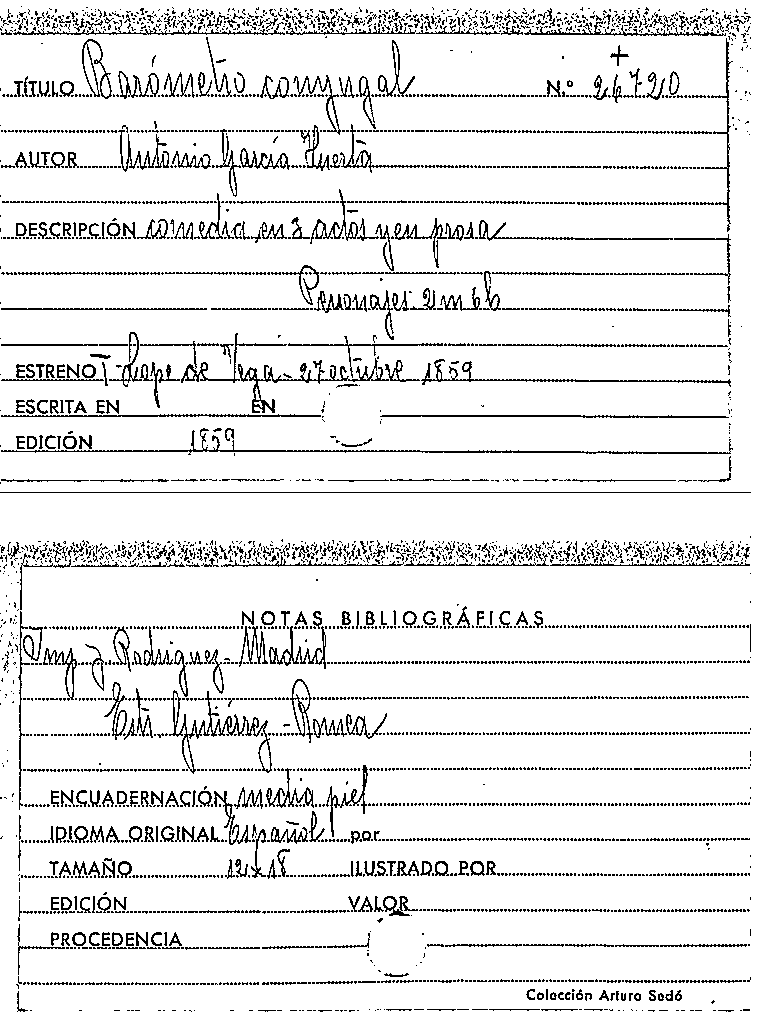 +
TÍTULO Barómetro conyugal N.º 26720
AUTOR Antonio García Huerta
DESCRIPCIÓN comedia en 3 actos y en prosa
Personajes 2m 6h
ESTRENO T-Lope de Vega - 27 octubre 1859
ESCRITA EN EN
EDICIÓN 1859
NOTAS BIBLIOGRÁFICAS
Imp J Rodriguez - Madrid
Estr Gutiérrez - Romea
ENCUADERNACIÓN media piel
IDIOMA ORIGINAL Español por
TAMAÑO 12x18 ILUSTRADO POR
EDICIÓN VALOR
PROCEDENCIA
Colección Arturo Sedó